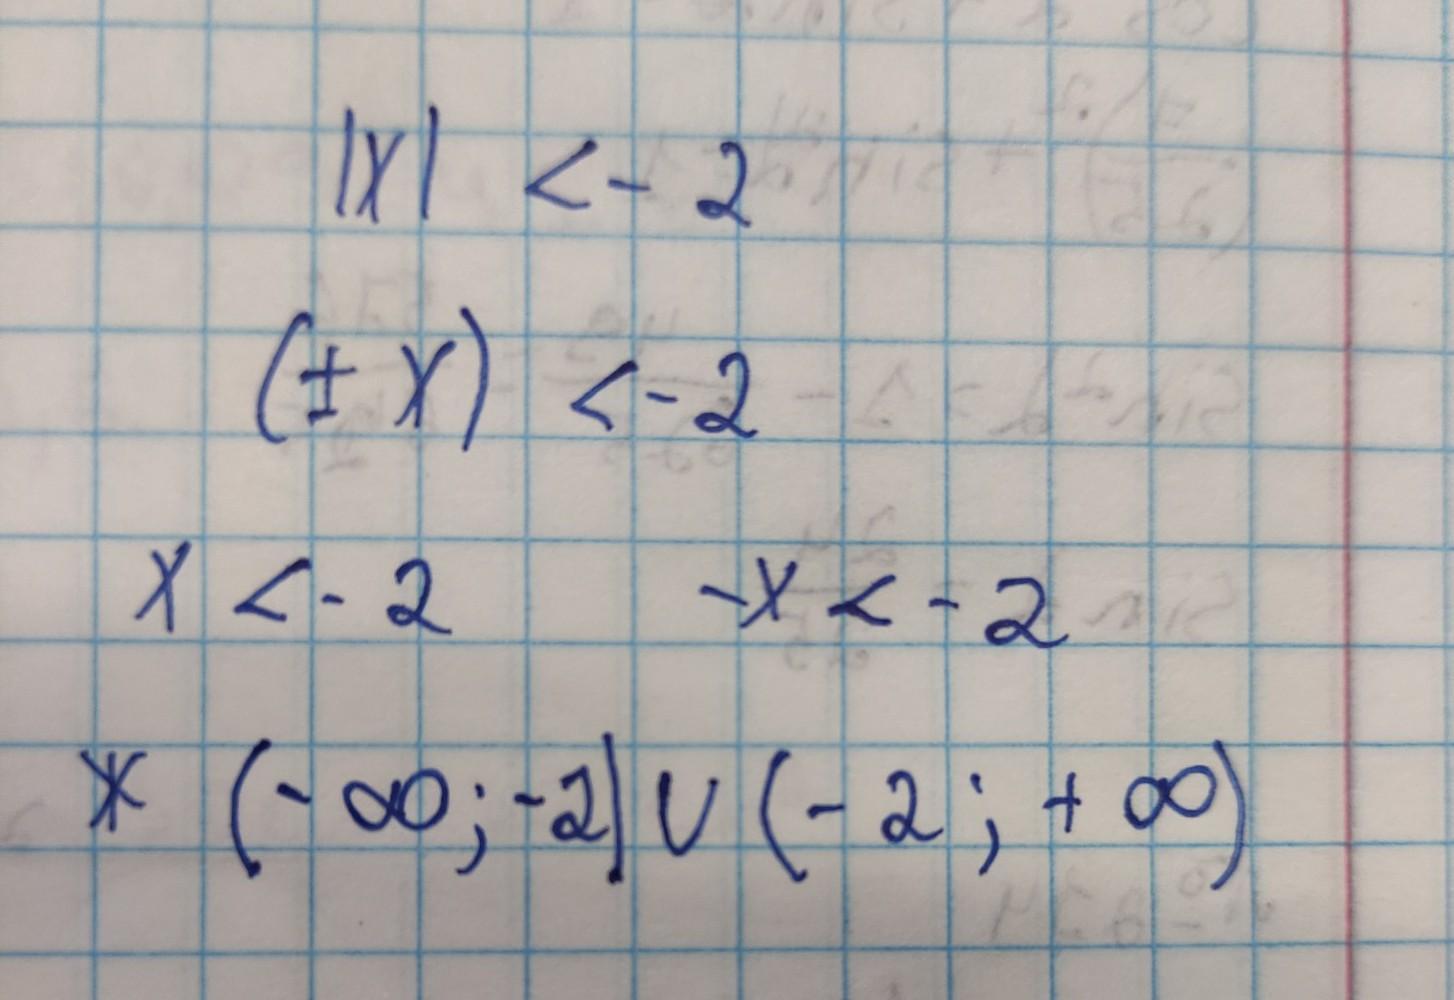 |x| < - 2
(± x) < - 2
x < - 2 -x < - 2
(- ∞; -2) ∪ (- 2; + ∞)